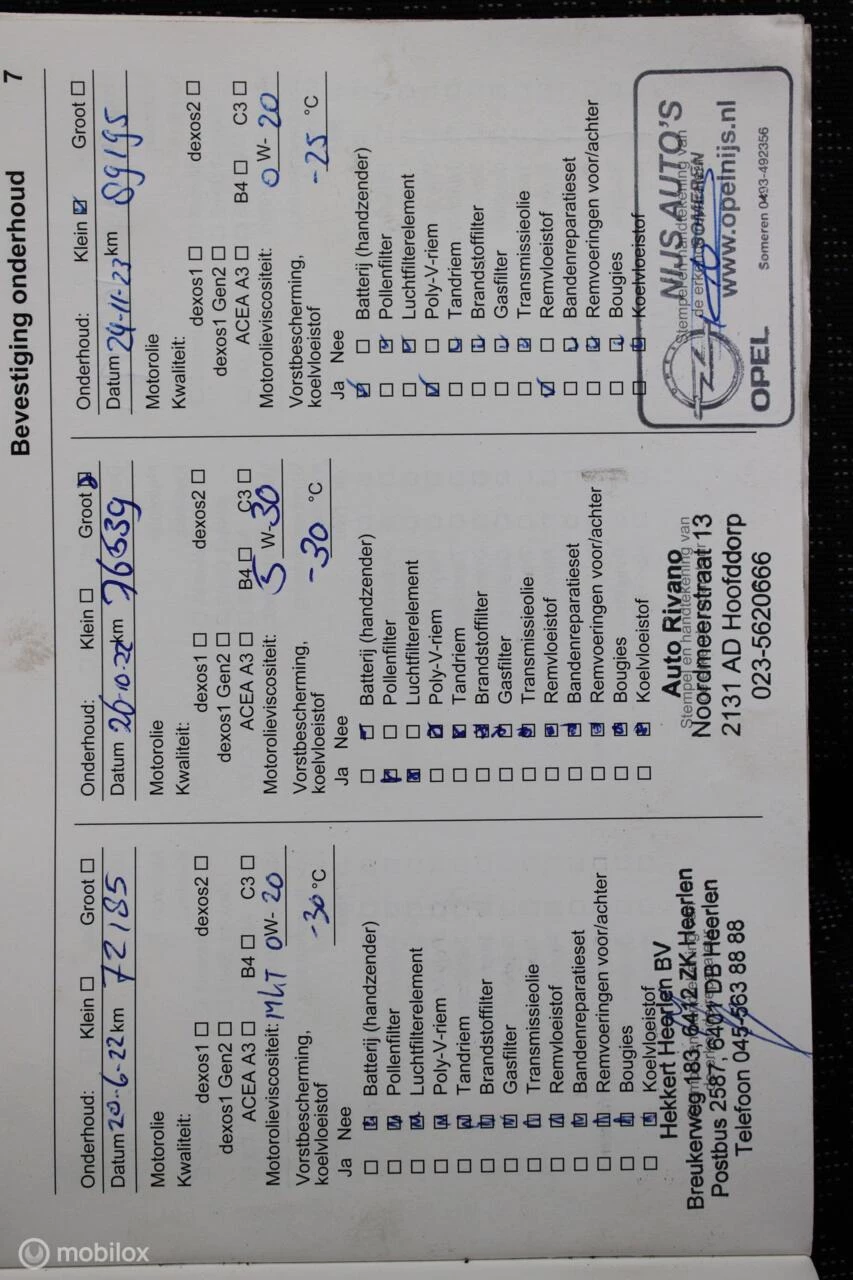 Bevestiging onderhoud 7
Onderhoud: Klein Groot
Datum 20-6-22 km 72185
Motorolie
Kwaliteit:
dexos1 dexos2
dexos1 Gen2
ACEA A3 B4 C3
Motorolieviscositeit: 0 W- 20
Vorstbescherming,
koelvloeistof -30 °C
Ja Nee
Batterij (handzender)
Pollenfilter
Luchtfilterelement
Poly-V-riem
Tandriem
Brandstoffilter
Gasfilter
Transmissieolie
Remvloeistof
Bandenreparatieset
Remvoeringen voor/achter
Bougies
Koelvloeistof
Hekkert Heerlen BV
Breukerweg 183, 6412 ZK Heerlen
Postbus 2587, 6401 DB Heerlen
Telefoon 045-563 88 88
Onderhoud: Klein Groot
Datum 26-10-22 km 76539
Motorolie
Kwaliteit:
dexos1 dexos2
dexos1 Gen2
ACEA A3 B4 C3
Motorolieviscositeit: 5 W- 30
Vorstbescherming,
koelvloeistof -30 °C
Ja Nee
Batterij (handzender)
Pollenfilter
Luchtfilterelement
Poly-V-riem
Tandriem
Brandstoffilter
Gasfilter
Transmissieolie
Remvloeistof
Bandenreparatieset
Remvoeringen voor/achter
Bougies
Koelvloeistof
Auto Rivano
Stempel en handtekening van
Noordmeerstraat 13
2131 AD Hoofddorp
023-5620666
Onderhoud: Klein Groot
Datum 24-11-23 km 89195
Motorolie
Kwaliteit:
dexos1 dexos2
dexos1 Gen2
ACEA A3 B4 C3
Motorolieviscositeit: 0 W- 20
Vorstbescherming,
koelvloeistof -25 °C
Ja Nee
Batterij (handzender)
Pollenfilter
Luchtfilterelement
Poly-V-riem
Tandriem
Brandstoffilter
Gasfilter
Transmissieolie
Remvloeistof
Bandenreparatieset
Remvoeringen voor/achter
Bougies
Koelvloeistof
NIJS AUTO'S
Stempel en handtekening van
de erkend
SOMEREN
www.opelnijs.nl
OPEL Someren 0493-492356
mobilox